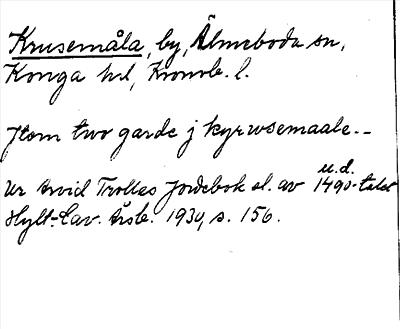 Krusemåla, by, Älmeboda sn,
Konga hd, Kronob. l.
Jtom two garde j kyrwsemaale.--
u.d.
Ur Arvid Trolles Jordebok sl. av 1490-talet
Hylt-Cav. Årsb. 1934, s. 156.